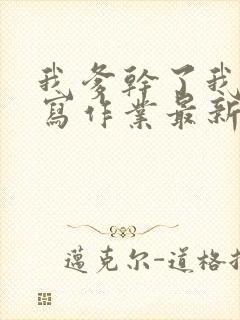 我爹幹了我
寫作業最新
邁克尔-道格拉